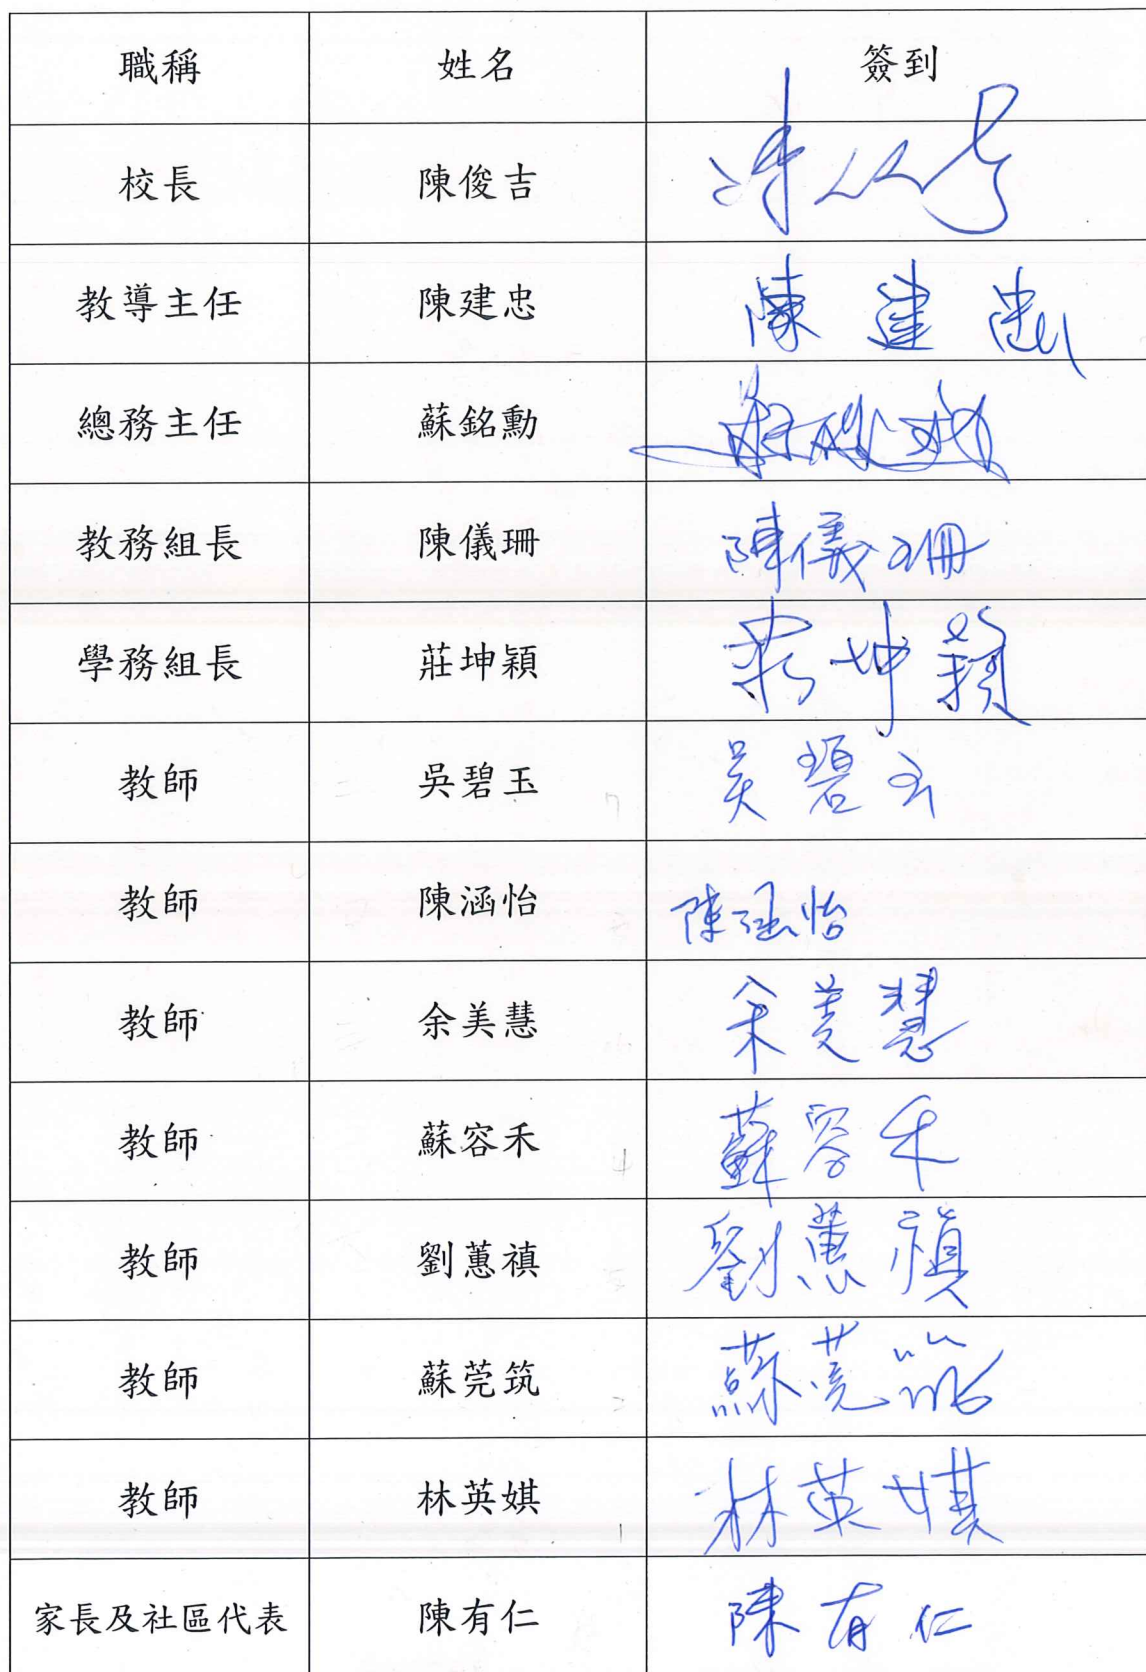 職稱 姓名 簽到
校長 陳俊吉
教導主任 陳建忠 陳建忠
總務主任 蘇銘勳
教務組長 陳儀珊 陳儀珊
學務組長 莊坤穎 莊坤穎
教師 吳碧玉 吳碧玉
教師 陳涵怡 陳涵怡
教師 余美慧 余美慧
教師 蘇容禾 蘇容禾
教師 劉蕙禛 劉蕙禛
教師 蘇莞筑 蘇莞筑
教師 林英娸 林英娸
家長及社區代表 陳有仁 陳有仁